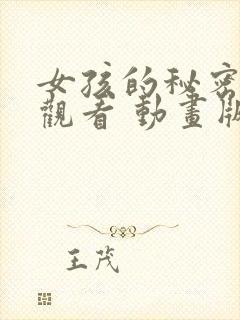 女孩的秘密
觀看 動畫版
王茂